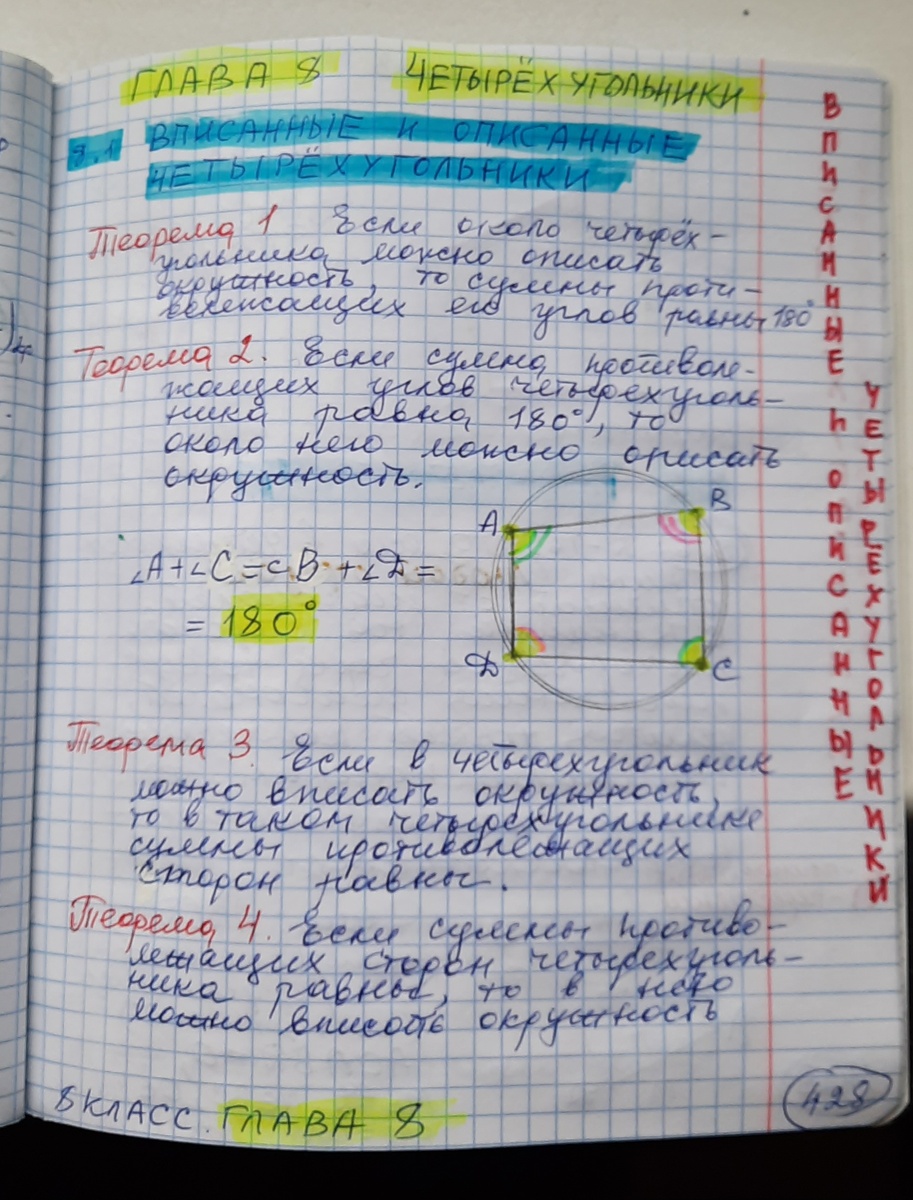 ГЛАВА 8 ЧЕТЫРЁХУГОЛЬНИКИ
8.1 ВПИСАННЫЕ И ОПИСАННЫЕ
ЧЕТЫРЁХУГОЛЬНИКИ
Теорема 1 Если около четырёх-
угольника можно описать
окружность, то суммы проти-
волежащих его углов равны 180°
Теорема 2. Если сумма противоле-
жащих углов четырехуголь-
ника равна 180°, то
около него можно описать
окружность.
A
B
∠A+∠C=∠B+∠D=
= 180°
D
C
Теорема 3. Если в четырехугольник
можно вписать окружность,
то в таком четырехугольнике
суммы противолежащих
сторон равны.
Теорема 4. Если суммы противо-
лежащих сторон четырехуголь-
ника равны, то в него
можно вписать окружность
8 КЛАСС. ГЛАВА 8
428
ВПИСАННЫЕ И ОПИСАННЫЕ
ЧЕТЫРЁХУГОЛЬНИКИ